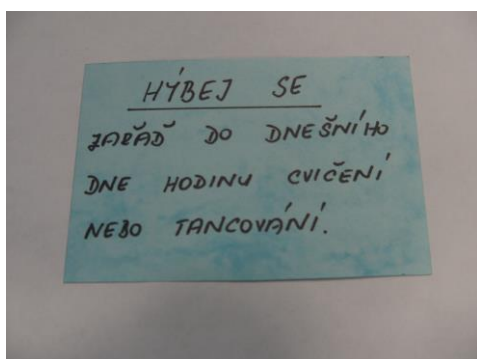 HÝBEJ SE
ZAŘAĎ DO DNEŠNÍHO
DNE HODINU CVIČENÍ
NEBO TANCOVÁNÍ.